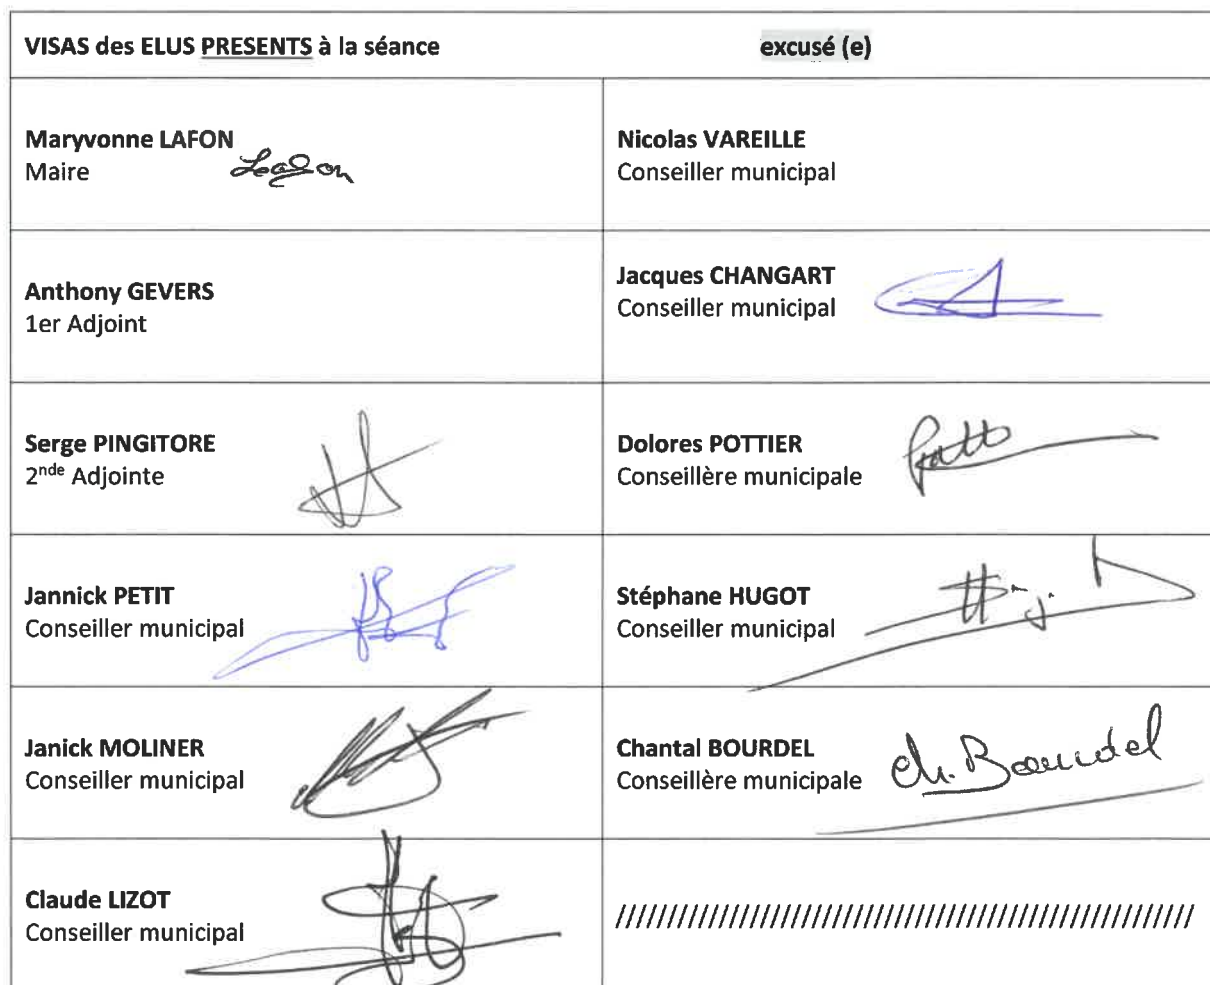 VISAS des ELUS PRESENTS à la séance excusé (e)
Maryvonne LAFON
Maire
Lafon
Nicolas VAREILLE
Conseiller municipal
Anthony GEVERS
1er Adjoint
Jacques CHANGART
Conseiller municipal
Serge PINGITORE
2nde Adjointe
Dolores POTTIER
Conseillère municipale
Jannick PETIT
Conseiller municipal
Stéphane HUGOT
Conseiller municipal
Janick MOLINER
Conseiller municipal
Chantal BOURDEL
Conseillère municipale
Ch. Bourdel
Claude LIZOT
Conseiller municipal
//////////////////////////////////////////////////